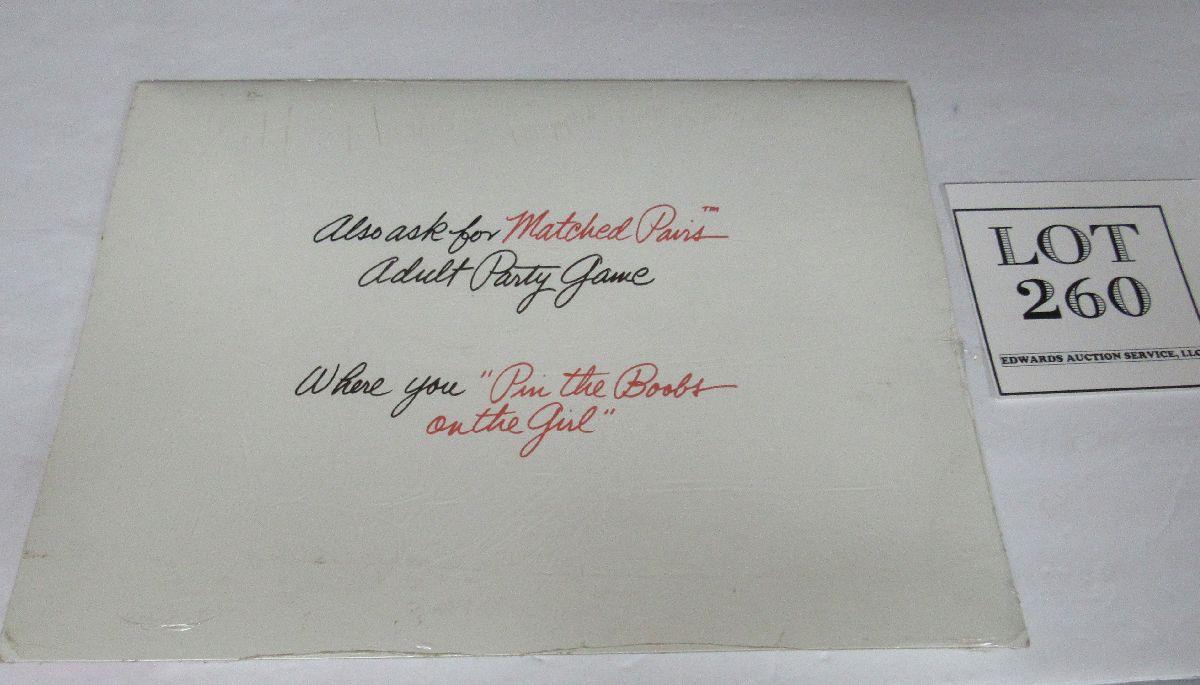 Also ask for Matched Pairs™
Adult Party Game
Where you "Pin the Boobs
on the Girl"
LOT
260
EDWARDS AUCTION SERVICE, LLC